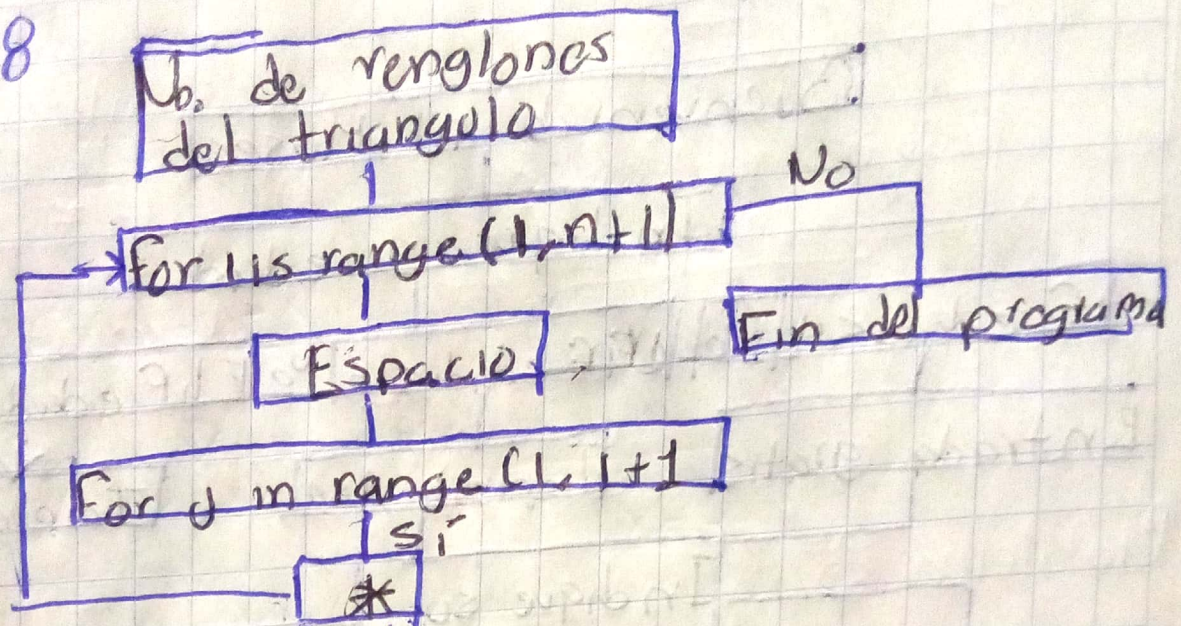 8
No. de renglones
del triangulo
No
for i is range (1, n+1)
Fin del programa
Espacio
For j in range (1, i+1
sí
*